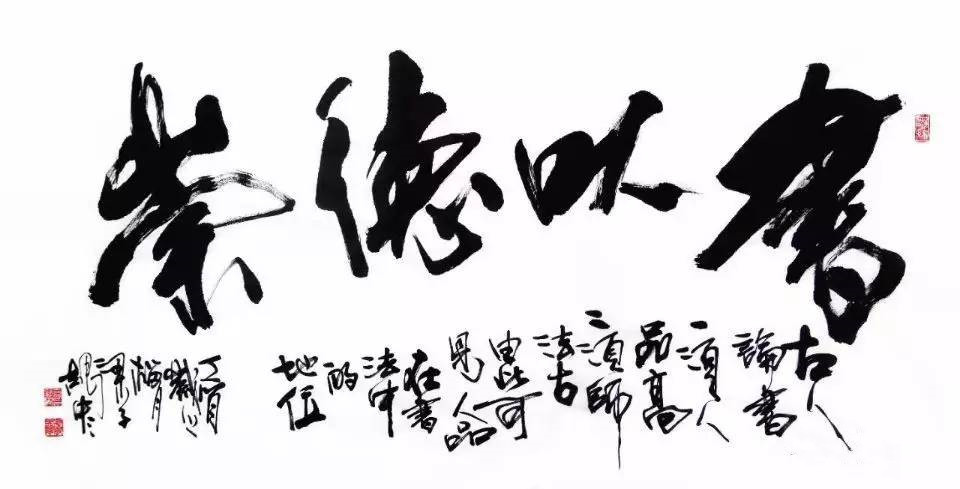 書以德崇
古人
論書
一須人
品高
二須師
法古
由此可
見人品
在書
法中
的
地位
丁酉